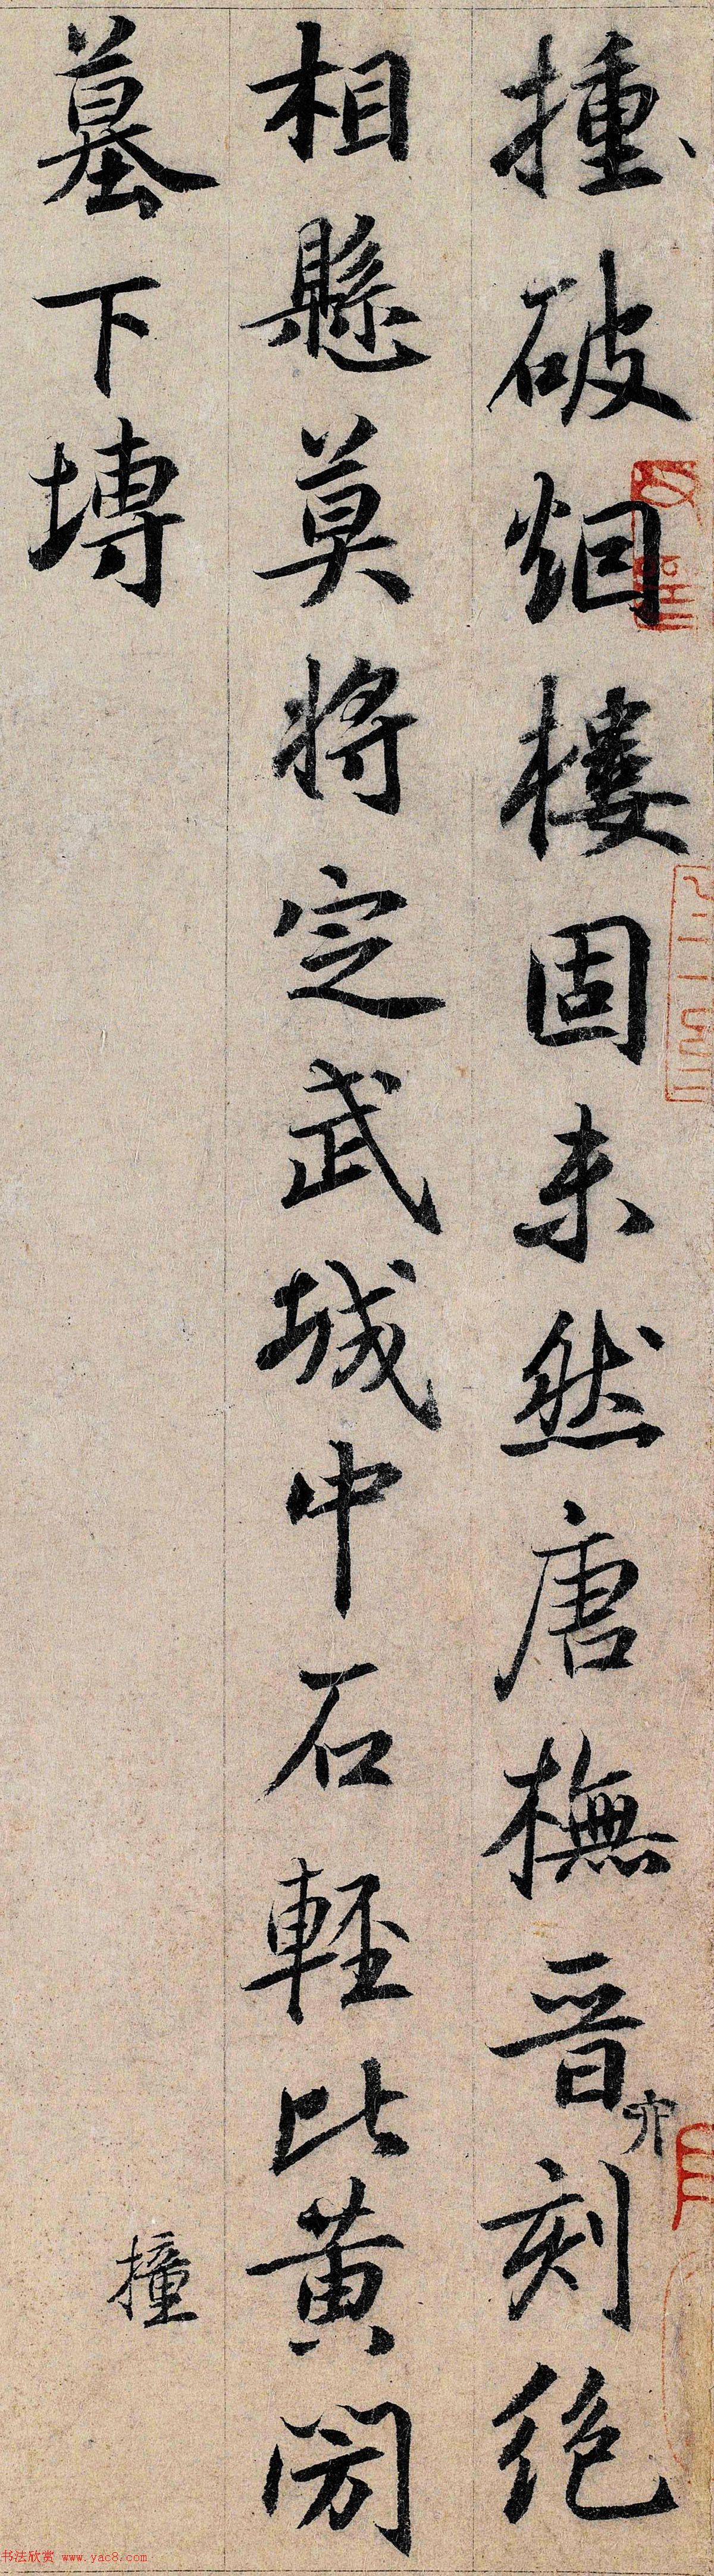 揰破烟樓固未然唐橅晉亦刻絶
相懸莫將定武城中石輕比黄閍
墓下塼
撞
书法欣赏 www.yac8.com